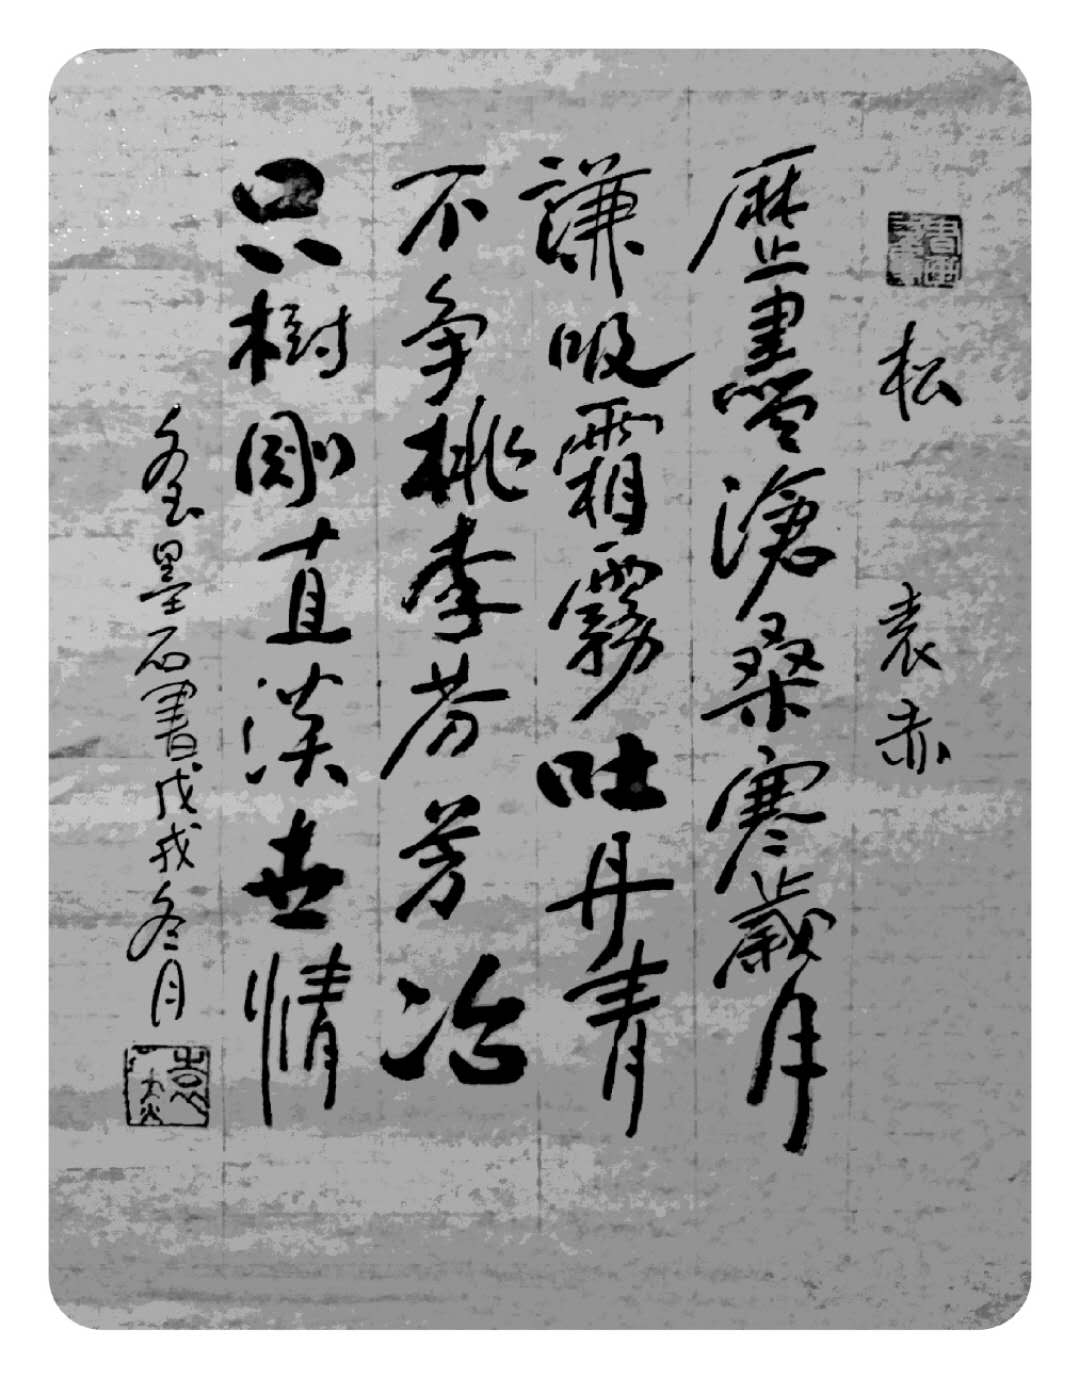 松 袁赤
歷盡滄桑寒歲月
謙吸霜霧吐丹青
不争桃李芬芳冶
只樹剛直淡世情
墨石書戊戌冬月